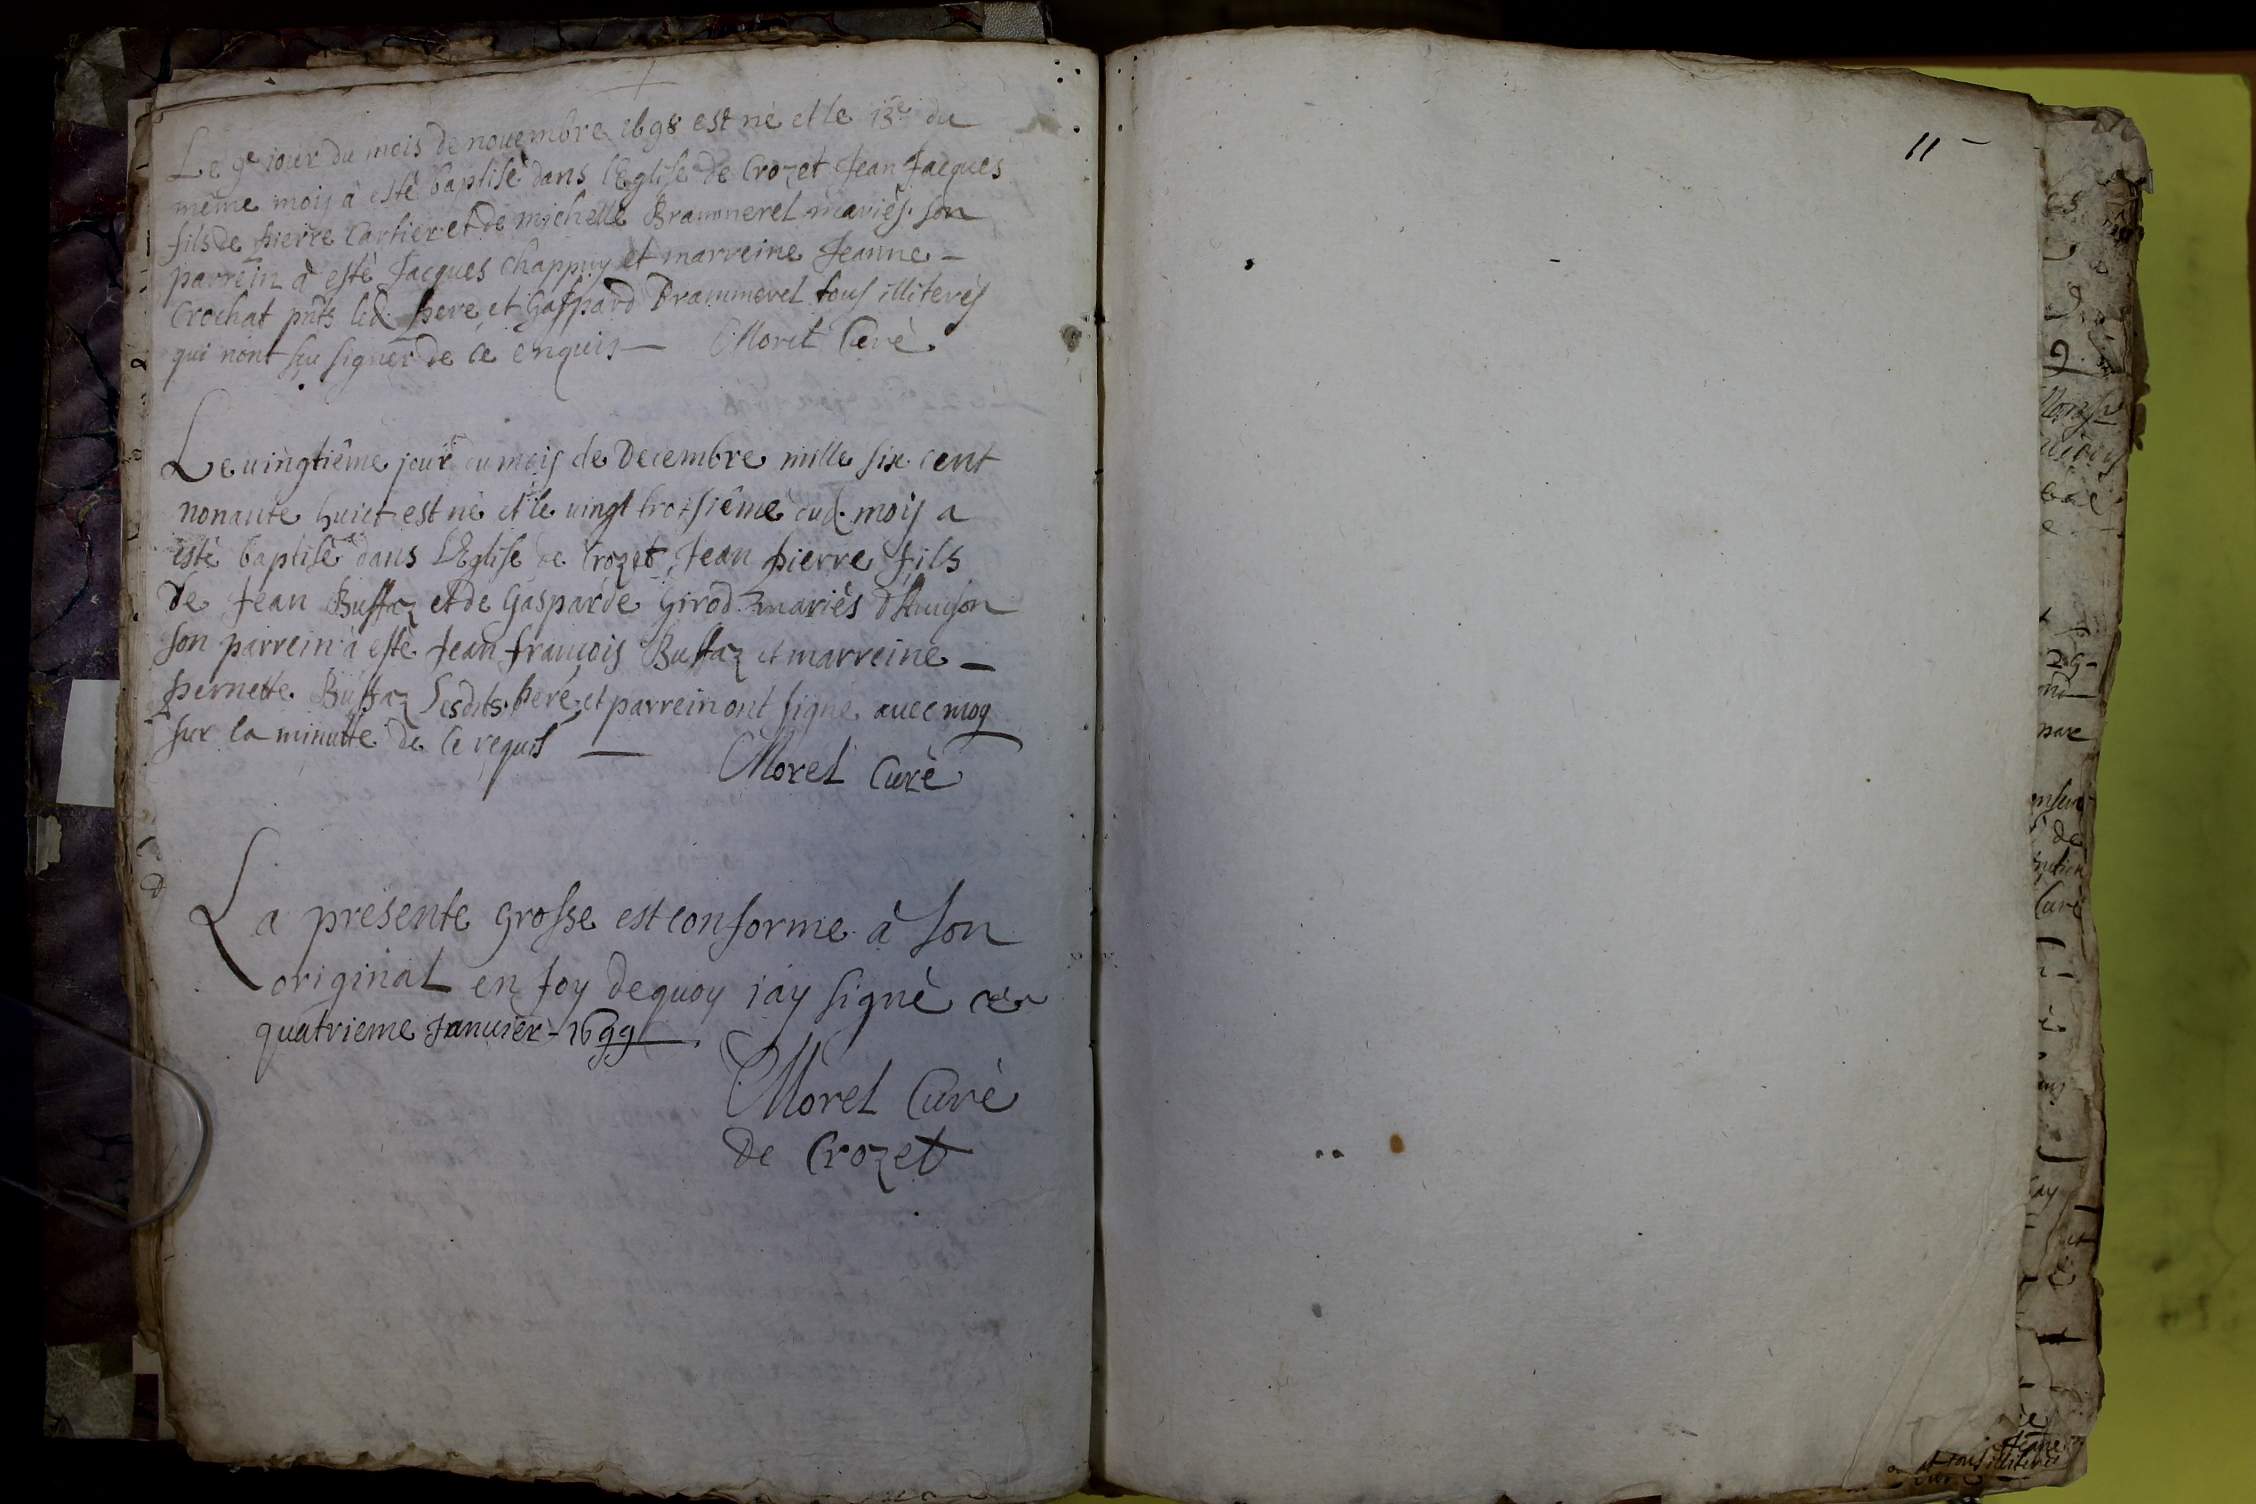 Le 9e jour du mois de nouembre 1698 est né et le 13e du
même mois à esté baptisé dans l'Eglise de Crozet Jean Jacques
fils de pierre Cartier et de michelle Brammerel mariés. son
parrein à esté Jacques Chappuy et marreine Jeanne -
Crochat pnts led. pere et Gaspard Brammerel tous illiterés
qui n'ont sçu signer de ce enquis — Morel Curé
Le uingtiême jour du mois de Decembre mille six cent
nonante huict est né et le uingt troisiême dud. mois a
esté baptisé dans L'Eglise de Crozet Jean pierre fils
de Jean Buffaz et de Gasparde Girod mariés
son parrein à esté Jean françois Buffaz et marreine —
pernette Buffaz Lesdits pere et parrein ont signé auec moy
sur la minutte de ce requis — Morel Curé
La presente grosse est conforme à son
original en foy dequoy i'ay signé ce
quatrieme Januier - 1699 .
Morel Curé
de Crozet
11